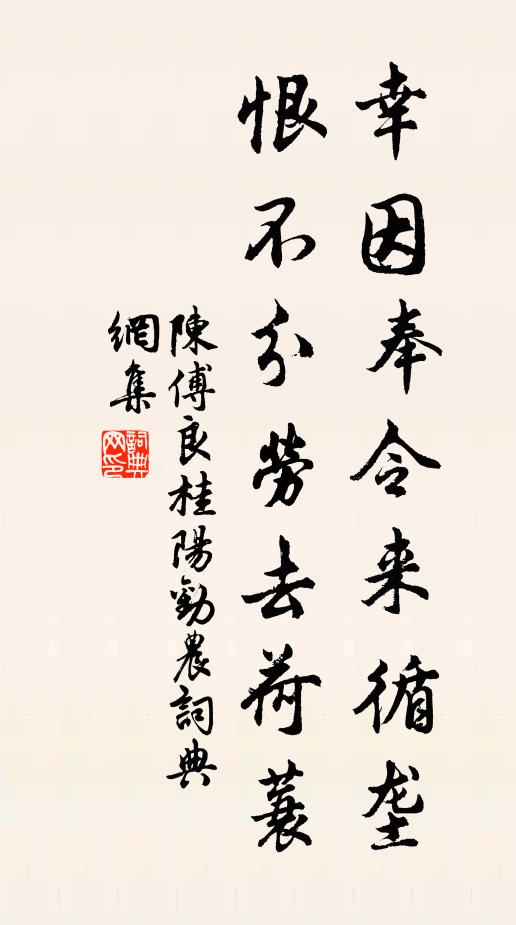 幸因奉令来循垄
恨不分勞去荷蓑
陳傅良桂陽勸農詞典
網集
詞典網印